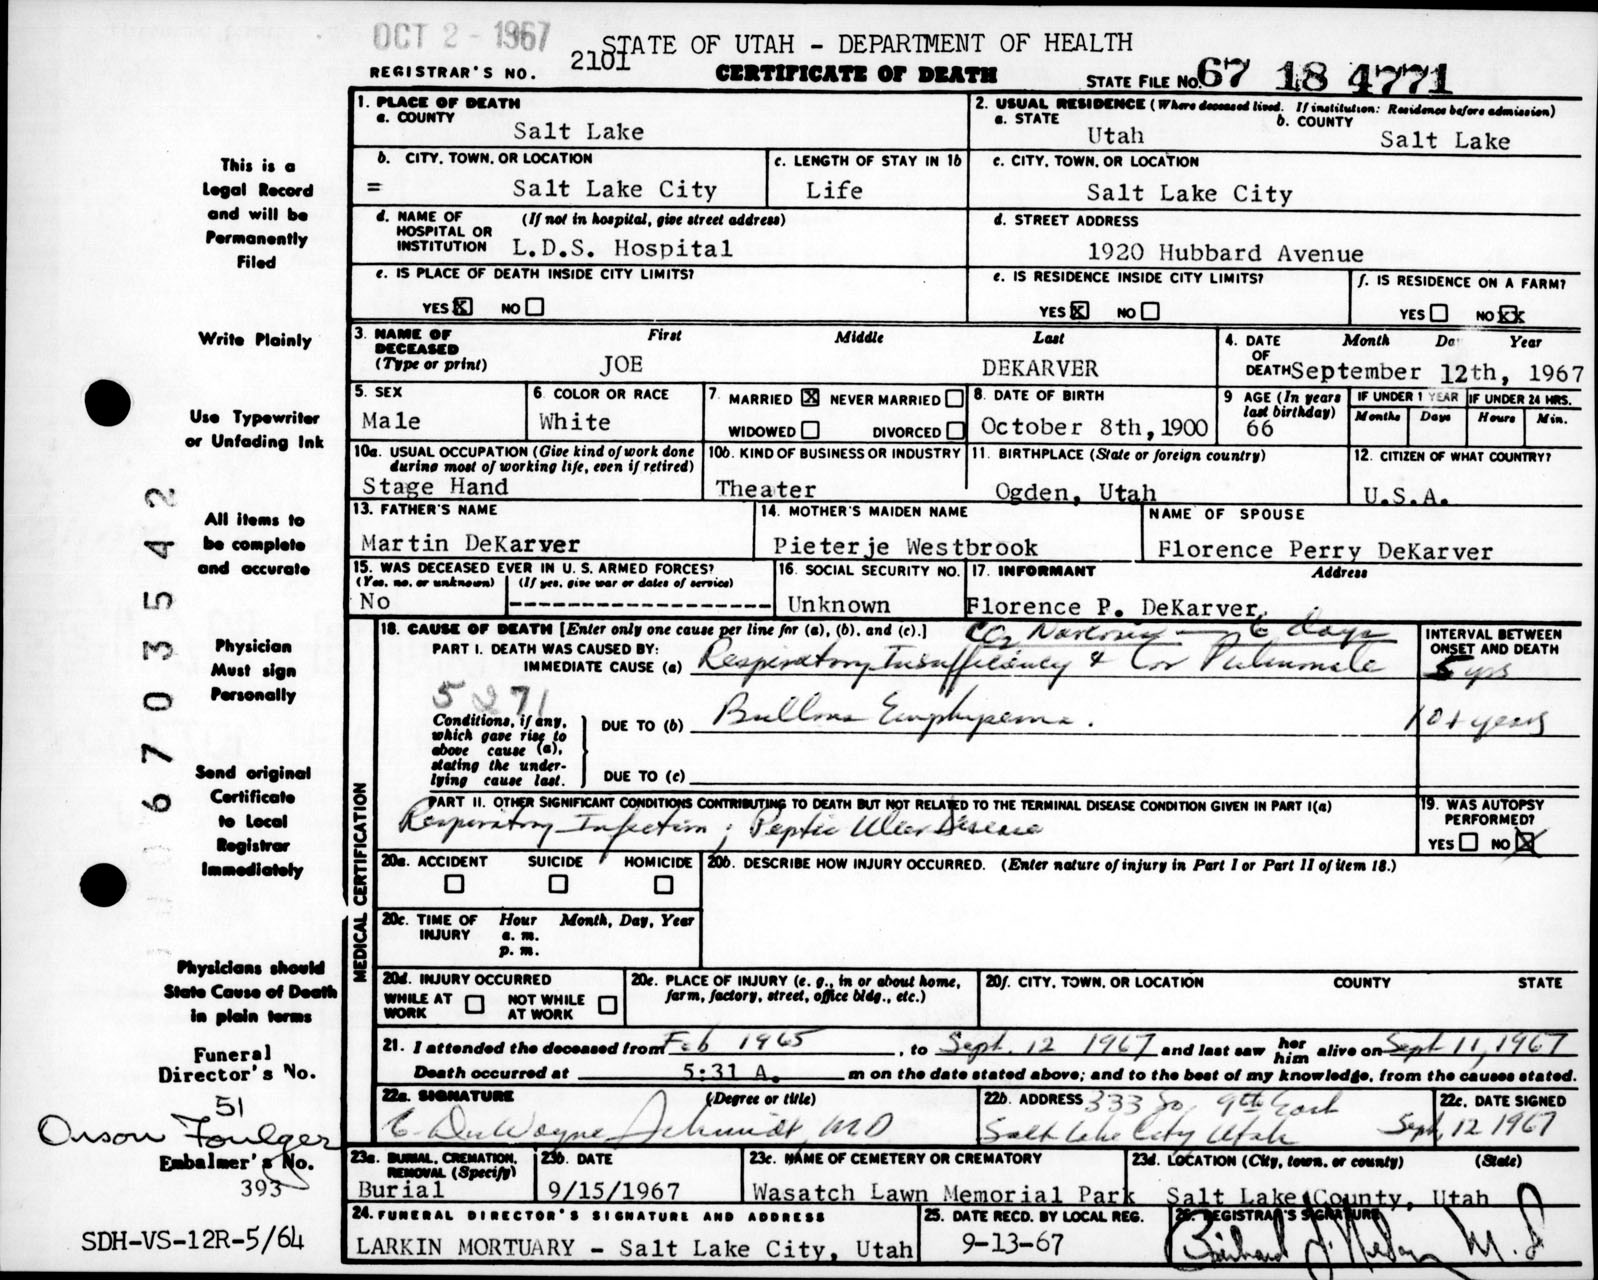 OCT 2 - 1967
STATE OF UTAH - DEPARTMENT OF HEALTH
REGISTRAR'S NO. 2101 CERTIFICATE OF DEATH STATE FILE NO. 67 18 4771
1. PLACE OF DEATH
a. COUNTY
Salt Lake
2. USUAL RESIDENCE (Where deceased lived. If institution: Residence before admission)
a. STATE b. COUNTY
Utah Salt Lake
b. CITY, TOWN, OR LOCATION
= Salt Lake City
c. LENGTH OF STAY IN 1b
Life
c. CITY, TOWN, OR LOCATION
Salt Lake City
d. NAME OF HOSPITAL OR INSTITUTION (If not in hospital, give street address)
L.D.S. Hospital
d. STREET ADDRESS
1920 Hubbard Avenue
e. IS PLACE OF DEATH INSIDE CITY LIMITS?
YES X NO
e. IS RESIDENCE INSIDE CITY LIMITS?
YES X NO
f. IS RESIDENCE ON A FARM?
YES NO XX
3. NAME OF DECEASED (Type or print) First Middle Last
JOE DEKARVER
4. DATE OF DEATH Month Da Year
September 12th, 1967
5. SEX
Male
6. COLOR OR RACE
White
7. MARRIED X NEVER MARRIED
WIDOWED DIVORCED
8. DATE OF BIRTH
October 8th, 1900
9 AGE (In years last birthday)
66
IF UNDER 1 YEAR IF UNDER 24 HRS.
Months Days Hours Min.
10a. USUAL OCCUPATION (Give kind of work done during most of working life, even if retired)
Stage Hand
10b. KIND OF BUSINESS OR INDUSTRY
Theater
11. BIRTHPLACE (State or foreign country)
Ogden, Utah
12. CITIZEN OF WHAT COUNTRY?
U.S.A.
13. FATHER'S NAME
Martin DeKarver
14. MOTHER'S MAIDEN NAME
Pieterje Westbrook
NAME OF SPOUSE
Florence Perry DeKarver
15. WAS DECEASED EVER IN U.S. ARMED FORCES?
(Yes, no, or unknown) (If yes, give war or dates of service)
No --------------------
16. SOCIAL SECURITY NO.
Unknown
17. INFORMANT Address
Florence P. DeKarver,
MEDICAL CERTIFICATION
18. CAUSE OF DEATH [Enter only one cause per line for (a), (b), and (c).]
CO2 Narcosis - 6 days
PART I. DEATH WAS CAUSED BY:
IMMEDIATE CAUSE (a) Respiratory Insufficiency & Cor Pulmonale
INTERVAL BETWEEN ONSET AND DEATH
5 yrs
5271
Conditions, if any, which gave rise to above cause (a), stating the underlying cause last.
DUE TO (b) Bullous Emphysema. 10+ years
DUE TO (c)
PART II. OTHER SIGNIFICANT CONDITIONS CONTRIBUTING TO DEATH BUT NOT RELATED TO THE TERMINAL DISEASE CONDITION GIVEN IN PART I(a)
Respiratory Infection ; Peptic Ulcer Disease
19. WAS AUTOPSY PERFORMED?
YES NO X
20a. ACCIDENT SUICIDE HOMICIDE
20b. DESCRIBE HOW INJURY OCCURRED. (Enter nature of injury in Part I or Part II of item 18.)
20c. TIME OF INJURY Hour Month, Day, Year
a. m.
p. m.
20d. INJURY OCCURRED
WHILE AT WORK NOT WHILE AT WORK
20e. PLACE OF INJURY (e. g., in or about home, farm, factory, street, office bldg., etc.)
20f. CITY, TOWN, OR LOCATION COUNTY STATE
21. I attended the deceased from Feb 1965, to Sept. 12 1967 and last saw her him alive on Sept 11, 1967
Death occurred at 5:31 A. m on the date stated above; and to the best of my knowledge, from the causes stated.
22a. SIGNATURE (Degree or title)
C. DuWayne Schmidt, MD
22b. ADDRESS 333 So, 9th East
Salt Lake City Utah
22c. DATE SIGNED
Sept, 12 1967
23a. BURIAL, CREMATION, REMOVAL (Specify)
Burial
23b. DATE
9/15/1967
23c. NAME OF CEMETERY OR CREMATORY
Wasatch Lawn Memorial Park
23d. LOCATION (City, town, or county) (State)
Salt Lake County, Utah
24. FUNERAL DIRECTOR'S SIGNATURE AND ADDRESS
LARKIN MORTUARY - Salt Lake City, Utah
25. DATE RECD. BY LOCAL REG.
9-13-67
26. REGISTRAR'S SIGNATURE
This is a
Legal Record
and will be
Permanently
Filed
Write Plainly
Use Typewriter
or Unfading Ink
All items to
be complete
and accurate
Physician
Must sign
Personally
Send original
Certificate
to Local
Registrar
Immediately
Physicians should
State Cause of Death
in plain terms
Funeral
Director's No.
51
Orson Foulger
Embalmer's No.
393
SDH-VS-12R-5/64
006703542